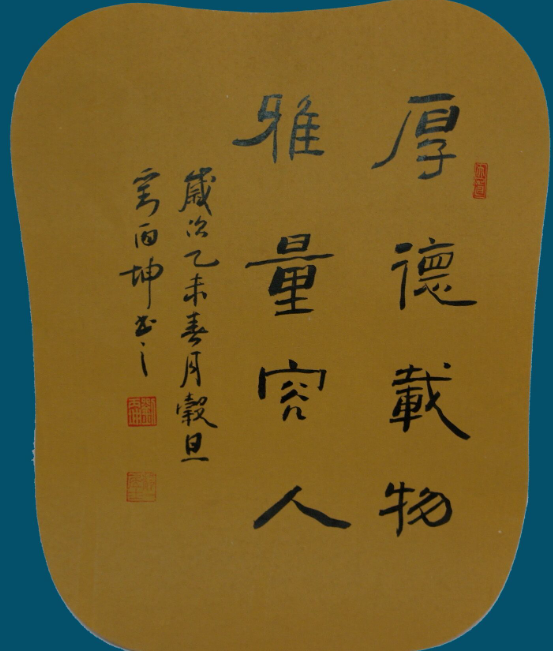 厚德載物
雅量容人
歲次乙未春月穀旦
百坤書之